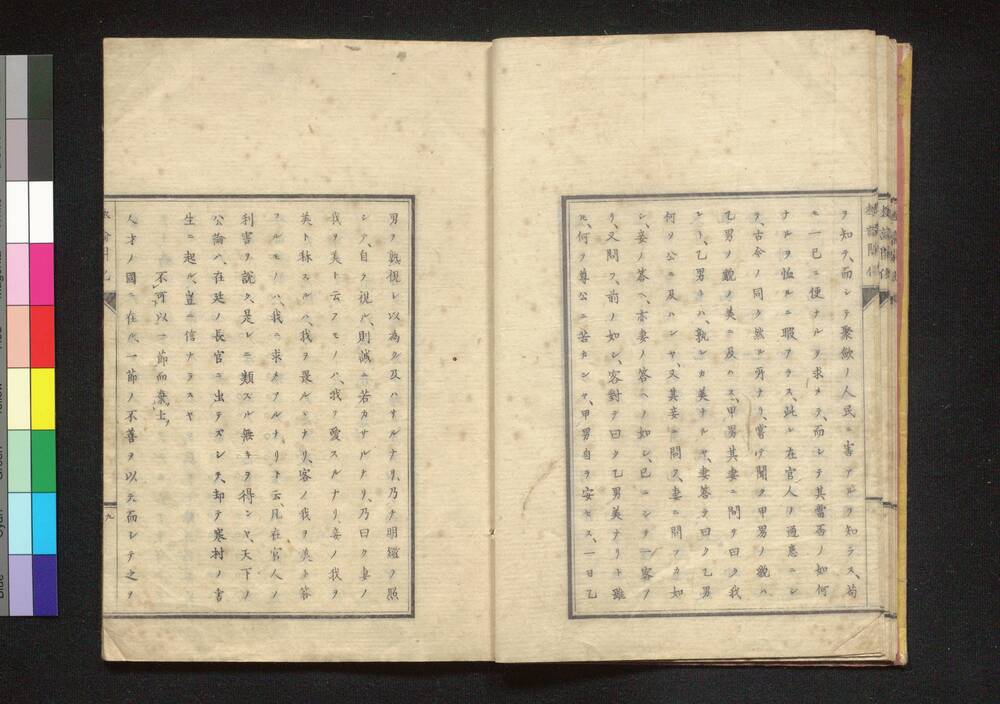 ヲ知ラ、而シテ聚歛ノ人民ニ害アルヲ知ラス、苟
モ一己ニ便ナルヲ求メテ、而シテ其當否ノ如何
ナルヲ恤ルニ暇アラス、此レ在官人ノ通患ニシ
テ、古今ノ同ク然ル所ナリ、嘗テ聞ク甲男ノ貌ハ
乙男ヲ貌ノ美ニ及ハス、甲男其妻ニ問ヲ曰ク我
レト、乙男トハ、孰レカ美ナルヤ、妻答テ曰ク乙男
何ソ公ニ及ハンヤ、又其妾ニ問フ、妻ニ問フカ如
シ、妾ノ答ヘ、亦妻ノ答ヘノ如シ、已ニシテ一客ア
リ、又問フ、前ノ如シ、客對テ曰ク乙男美ナリト雖
𪜈、何ヲ尊公ニ若カンヤ、甲男自ラ安セス、一日乙
男ヲ熟視シ以為ク及ハサルナリ、乃チ明鑑ヲ照
シテ、自ラ視ル、則誠ニ若カサルナリ、乃曰ク妻ノ
我ヲ美ト云フモノハ、我ヲ愛スルナリ、妾ノ我ヲ
美ト称スルハ、我ヲ畏ルヽナリ、客ノ我ヲ美ト答
フルモノハ、我ニ求メアルナリト云、凡在官人ノ
利害ヲ説ク、是レニ類スル無キヲ得ンヤ、天下ノ
公論ハ、在廷ノ長官ニ出テズシテ、却テ寒村ノ書
生ニ起ル、豈ニ信ナラスヤ
不可以一節而棄士
人才ノ國ニ在ル、一節ノ不善ヲ以テ而シテ之ヲ
九